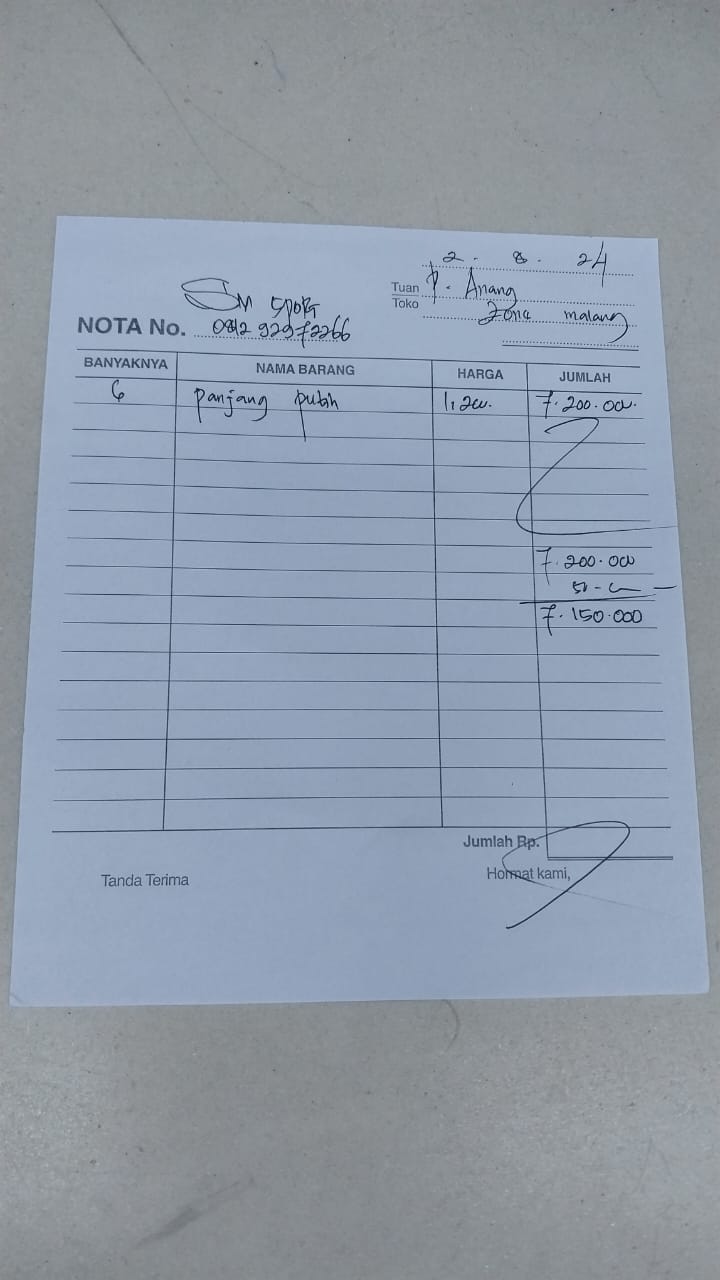 2. 8. 24
Tuan P. Anang
Toko Zona malang
SM SPORT
NOTA No. 0812 92972266
BANYAKNYA NAMA BARANG HARGA JUMLAH
6 panjang putih 1,200. 7.200.000.
7.200.000
50 -
7.150.000
Jumlah Rp.
Tanda Terima Hormat kami,